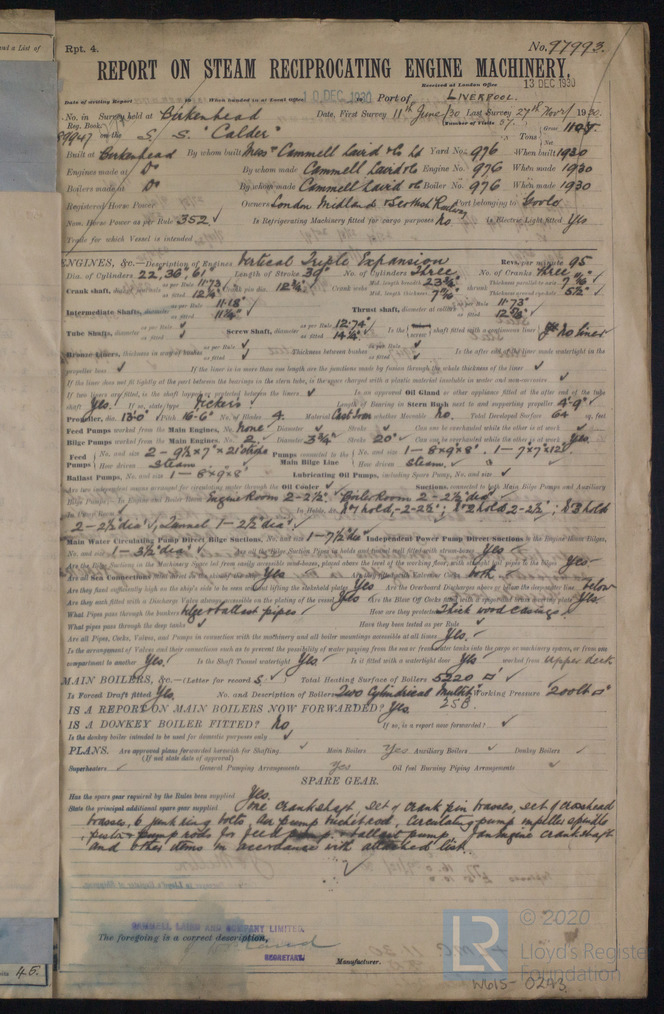 and a List of
Rpt. 4.
No. 97993.
REPORT ON STEAM RECIPROCATING ENGINE MACHINERY.
Received at London Office 13 DEC 1930
Date of writing Report When handed in at Local Office 10 DEC. 1930 Port of LIVERPOOL.
No. in Survey held at Birkenhead Date, First Survey 11th June/30 Last Survey 27th Novr/ 1930.
Reg. Book. (Number of Visits 37.)
89947 on the S. S. "Calder" Tons Gross Net
Built at Birkenhead By whom built Messrs Cammell Laird & Co Ld Yard No. 976 When built 1930
Engines made at Do By whom made Cammell Laird & Co Engine No. 976 When made 1930
Boilers made at Do By whom made Cammell Laird & Co Boiler No. 976 When made 1930
Registered Horse Power Owners London Midland & Scottish Railway Port belonging to Goole
Nom. Horse Power as per Rule 352 Is Refrigerating Machinery fitted for cargo purposes No Is Electric Light fitted Yes
Trade for which Vessel is intended
ENGINES, &c.—Description of Engines Vertical Triple Expansion Revs. per minute 95
Dia. of Cylinders 22", 36" 61" Length of Stroke 39" No. of Cylinders Three No. of Cranks Three
Crank shaft, as per Rule 11.73 as fitted 12¼" Crank webs Mid. length breadth 23¾" Mid. length thickness 7 7/16" Thickness parallel to axis 7 7/16" Thickness around eyehole 5½"
Intermediate Shafts, diameter as per Rule 11.18" as fitted 11¼" Thrust shaft, diameter at collars as per Rule 11.73"
Tube Shafts, diameter as per Rule as fitted Screw Shaft, diameter as per Rule 12.74" as fitted 14¼" Is the screw shaft fitted with a continuous liner No liner
Bronze Liners, thickness in way of bushes as per Rule as fitted Thickness between bushes as per Rule as fitted Is the after end of the liner made watertight in the
propeller boss If the liner is in more than one length are the junctions made by fusion through the whole thickness of the liner
If the liner does not fit tightly at the part between the bearings in the stern tube, is the space charged with a plastic material insoluble in water and non-corrosive
If two liners are fitted, is the shaft lapped or protected between the liners Is an approved Oil Gland or other appliance fitted at the after end of the tube
shaft Yes. If so, state type Vickers Length of Bearing in Stern Bush next to and supporting propeller 4'-9"
Propeller, dia. 13'-0" Pitch 16'-6" No. of Blades 4. Material Cast Iron whether Moveable No. Total Developed Surface 64 sq. feet
Feed Pumps worked from the Main Engines, No. None Diameter Stroke Can one be overhauled while the other is at work
Bilge Pumps worked from the Main Engines, No. 2 Diameter 3¾" Stroke 20" Can one be overhauled while the other is at work Yes.
Feed Pumps No. and size 2 - 9½" x 7" x 21" stroke How driven Steam Pumps connected to the Main Bilge Line No. and size 1 - 8"x9"x8". 1 - 7"x7"x12" How driven Steam,
Ballast Pumps, No. and size 1 - 8"x9"x8" Lubricating Oil Pumps, including Spare Pump, No. and size
Are two independent means arranged for circulating water through the Oil Cooler Suctions, connected to both Main Bilge Pumps and Auxiliary
Bilge Pumps,—In Engine and Boiler Room Engine Room 2 - 2½" Boiler Room 2 - 2½" dia
In Holds, &c. No 1 hold, 2-2½"; No 2 hold 2-2½"; No 3 hold
2 - 2½" dia, Tunnel 1 - 2½" dia
Main Water Circulating Pump Direct Bilge Suctions, No. and size 1 - 7½" dia Independent Power Pump Direct Suctions to the Engine Room Bilges,
No. and size 1 - 3½" dia Are all the Bilge Suction Pipes in holds and tunnel well fitted with strum-boxes Yes
Are the Bilge Suctions in the Machinery Space led from easily accessible mud-boxes, placed above the level of the working floor, with straight tail pipes to the bilges Yes
Are all Sea Connections fitted direct on the skin of the ship Yes Are they fitted with Valves or Cocks both
Are they fixed sufficiently high on the ship's side to be seen without lifting the stokehold plates Yes Are the Overboard Discharges above or below the deep water line below
Are they each fitted with a Discharge Valve always accessible on the plating of the vessel Yes Are the Blow Off Cocks fitted with a spigot and brass covering plate Yes.
What Pipes pass through the bunkers bilge & ballast pipes How are they protected Thick wood casings.
What pipes pass through the deep tanks Have they been tested as per Rule
Are all Pipes, Cocks, Valves, and Pumps in connection with the machinery and all boiler mountings accessible at all times Yes.
Is the arrangement of Valves and their connections such as to prevent the possibility of water passing from the sea or from water tanks into the cargo or machinery spaces, or from one
compartment to another Yes. Is the Shaft Tunnel watertight Yes. Is it fitted with a watertight door Yes worked from Upper deck
MAIN BOILERS, &c.—(Letter for record S.) Total Heating Surface of Boilers 5220 □'
Is Forced Draft fitted Yes. No. and Description of Boilers Two Cylindrical Multit. 2SB. Working Pressure 200 lb □"
IS A REPORT ON MAIN BOILERS NOW FORWARDED? Yes.
IS A DONKEY BOILER FITTED? No If so, is a report now forwarded?
Is the donkey boiler intended to be used for domestic purposes only
PLANS. Are approved plans forwarded herewith for Shafting Main Boilers Yes Auxiliary Boilers Donkey Boilers
(If not state date of approval)
Superheaters General Pumping Arrangements Yes Oil fuel Burning Piping Arrangements
SPARE GEAR.
Has the spare gear required by the Rules been supplied Yes.
State the principal additional spare gear supplied One crankshaft, set of crank pin brasses, set of crosshead
brasses, 6 junk ring bolts, Air pump bucket rod, Circulating pump impeller spindle
piston & pump rods for feed pump & ballast pump, fan engine crankshaft
and other items in accordance with attached list.
CAMMELL LAIRD AND COMPANY LIMITED.
The foregoing is a correct description,
SECRETARY.
Manufacturer.
45.
LR
© 2020
Lloyd's Register
Foundation
W615-0243